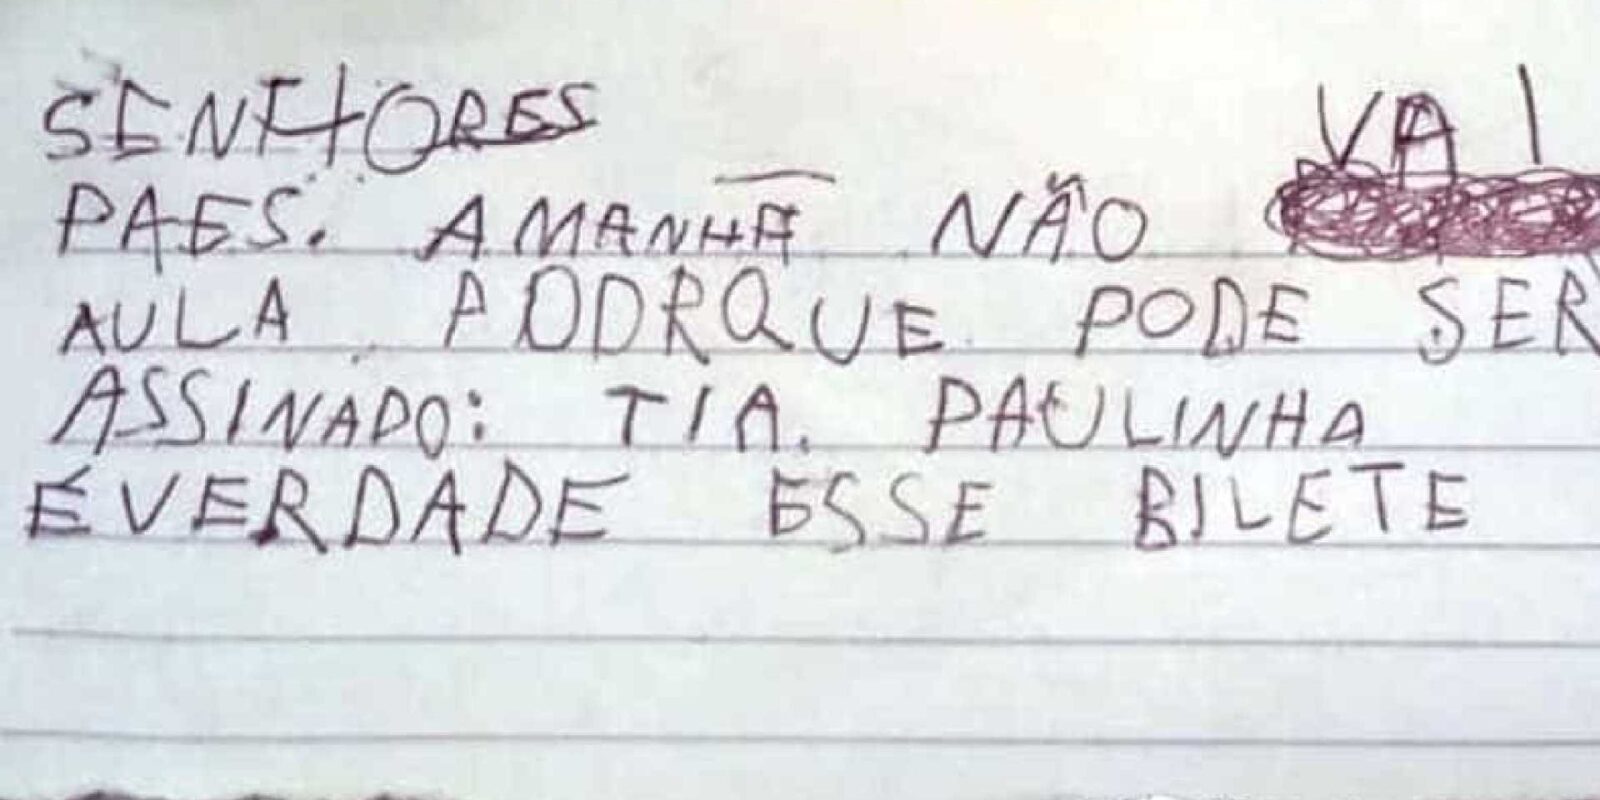 SENHORES
PAES. AMANHÃ NÃO VAI
AULA PODRQUE PODE SER
ASSINADO: TIA. PAULINHA
ÉVERDADE ESSE BILETE